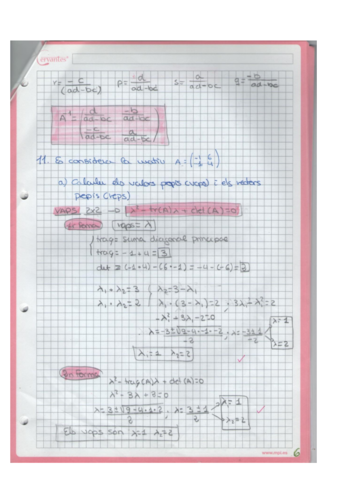 cervantes
r = -c/(ad-bc) p = d/ad-bc s = a/ad-bc q = -b/ad-bc
A⁻¹ = (d/ad-bc -b/ad-bc
-c/ad-bc a/ad-bc)
11. Es considera la matriu A = (-1 6
-1 4)
a) Calcula els valors propis (vaps) i els vectors
propis (veps)
VAPS 2x2 → λ² - tra(A)λ + det(A) = 0
1ª forma vaps = λ
traça suma diagonal principal
traça = -1 + 4 = 3
det = (-1·4) - (6·-1) = -4 - (-6) = 2
λ₁ + λ₂ = 3 λ₂ = 3 - λ₁
λ₁ · λ₂ = 2 λ₁ · (3 - λ₁) = 2 3λ₁ - λ² = 2
-λ² + 3λ₁ - 2 = 0
λ = -3 ± √9 - 4·-1·-2 / -2 λ = -3 ± 1 / -2 λ = 1
λ = 2
λ₁ = 1 λ₂ = 2
2ª forma
λ² - traça(A)λ + det(A) = 0
λ² - 3λ + 2 = 0
λ = 3 ± √9 - 4·1·2 / 2 λ = 3 ± 1 / 2 λ₁ = 1
λ₂ = 2
Els vaps són λ₁ = 1 λ₂ = 2
6